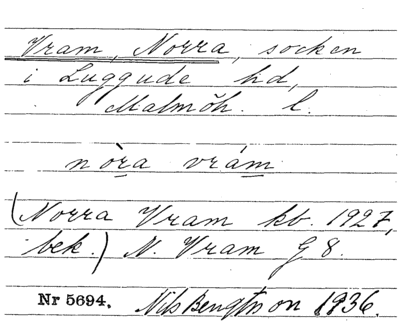 Vram, Norra, socken
i Luggude hd,
Malmöh. l.
nòra vrám
(Norra Vram kb. 1927,
bek.) N. Vram G 8.
Nr 5694. Nils Bengtsson 1936.